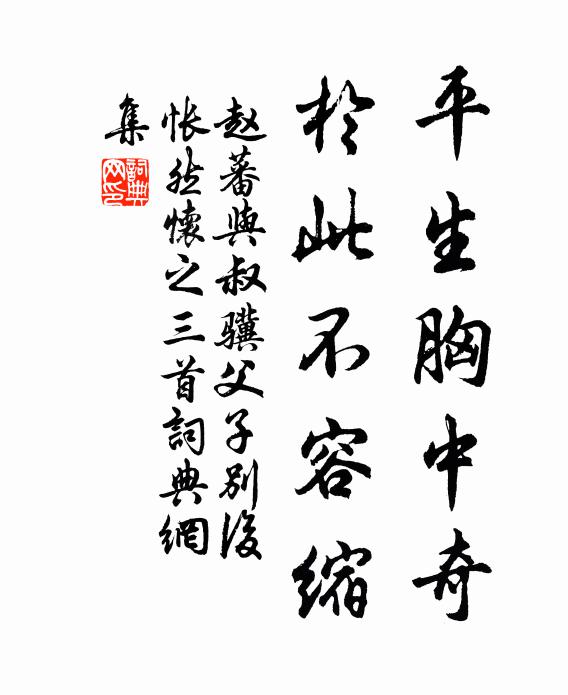 平生胸中奇
於此不容缩
赵蕃與叔骥父子别後
怅然懷之三首詞典網
集
詞典
网印